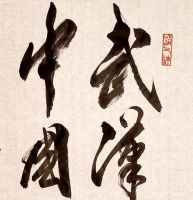 武漢
中國